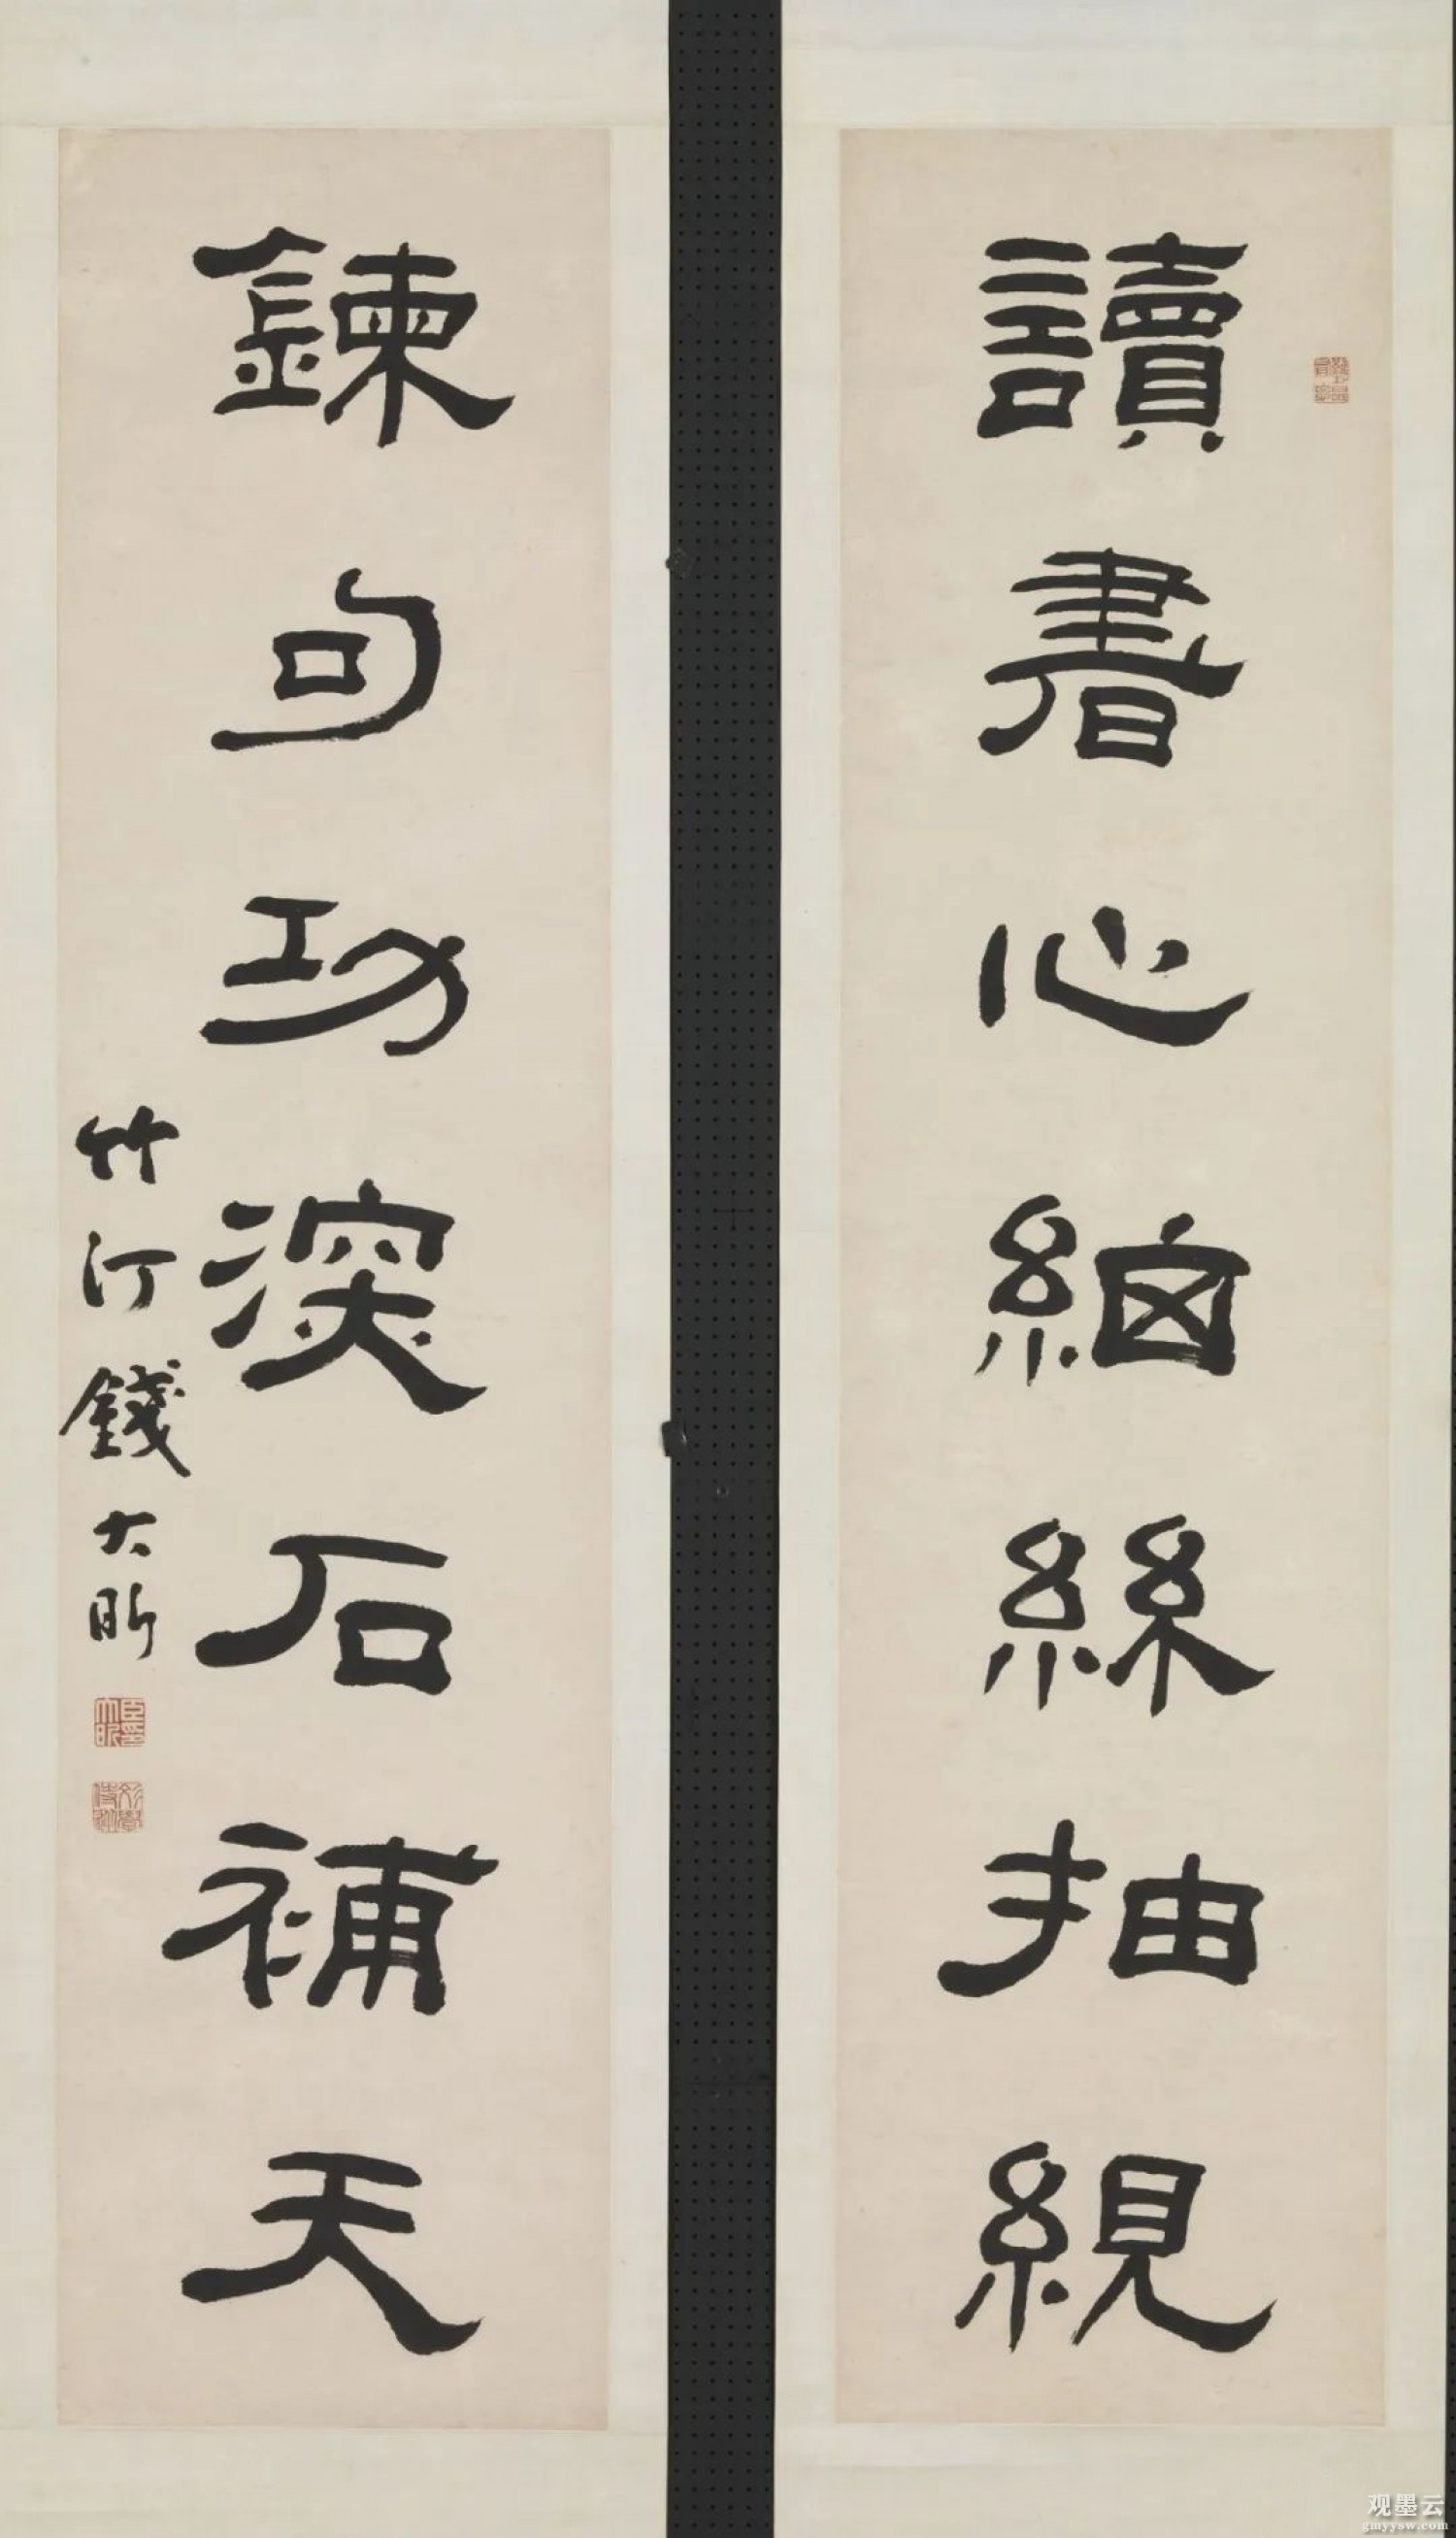 讀書心細絲抽繭
鍊句功深石補天
竹汀錢大昕
臣大昕印
观墨云
gmyysw.com